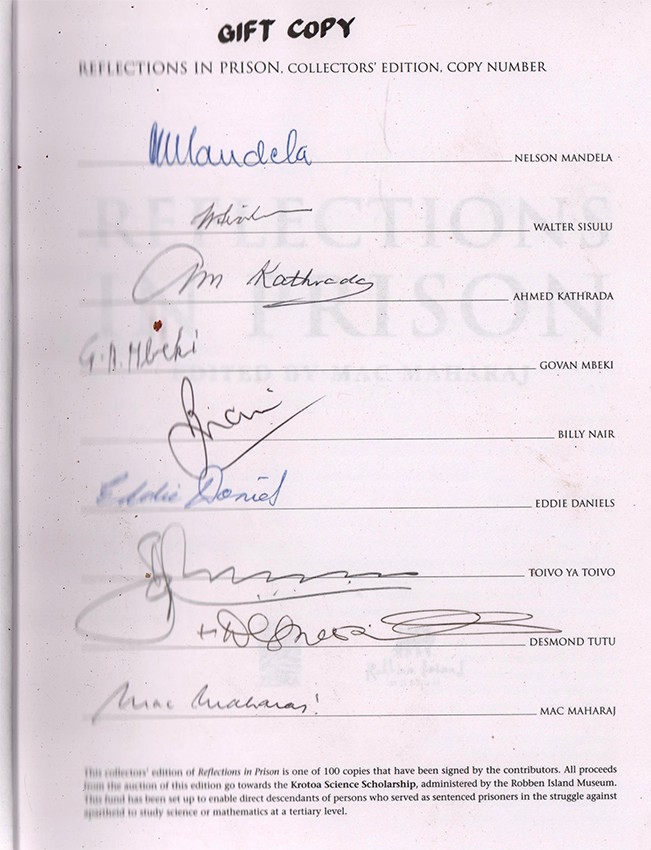 GIFT COPY
REFLECTIONS IN PRISON, COLLECTORS' EDITION, COPY NUMBER
NMandela NELSON MANDELA
WALTER SISULU
AM Kathrada AHMED KATHRADA
G.A. Mbeki GOVAN MBEKI
BILLY NAIR
Eddie Daniels EDDIE DANIELS
TOIVO YA TOIVO
DESMOND TUTU
Mac Maharaj MAC MAHARAJ
REFLECTIONS
IN PRISON
EDITED BY MAC MAHARAJ
This collectors' edition of Reflections in Prison is one of 100 copies that have been signed by the contributors. All proceeds
from the auction of this edition go towards the Krotoa Science Scholarship, administered by the Robben Island Museum.
This fund has been set up to enable direct descendants of persons who served as sentenced prisoners in the struggle against
apartheid to study science or mathematics at a tertiary level.